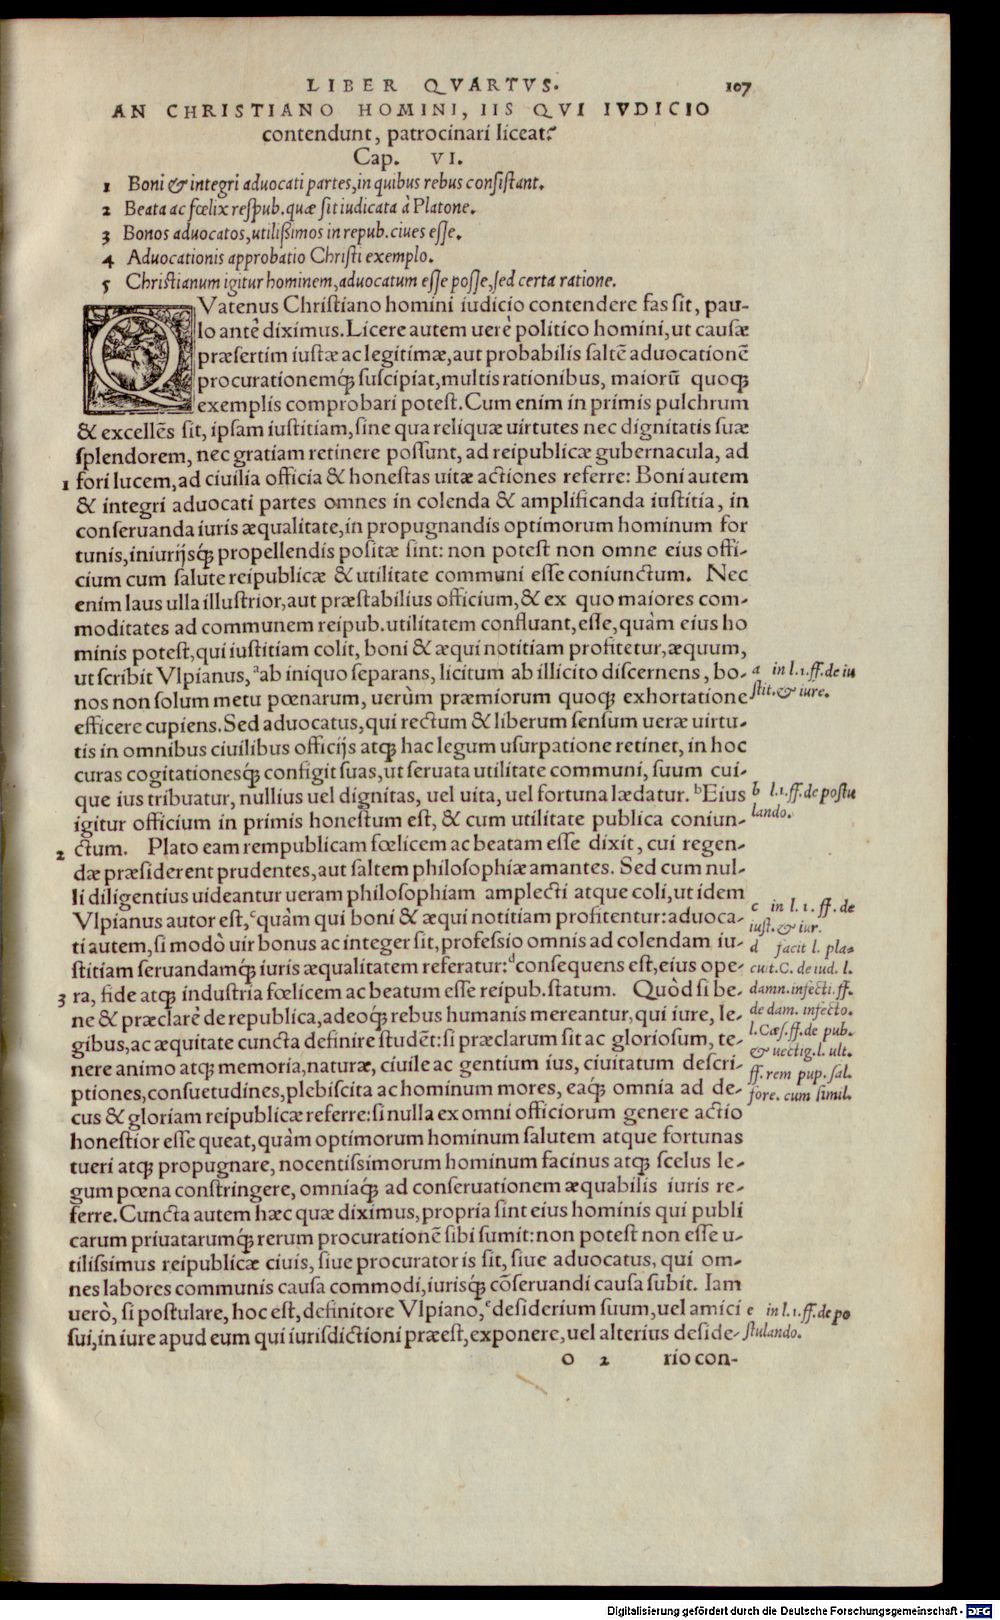 LIBER QVARTVS. 107
AN CHRISTIANO HOMINI, IIS QVI IVDICIO
contendunt, patrocinari liceat?
Cap. VI.
1 Boni & integri aduocati partes, in quibus rebus consistant.
2 Beata ac fœlix respub. quæ sit iudicata à Platone.
3 Bonos aduocatos, utilißimos in repub. ciues esse.
4 Aduocationis approbatio Christi exemplo.
5 Christianum igitur hominem, aduocatum esse posse, sed certa ratione.
QVatenus Christiano homini iudicio contendere fas sit, pau-
lo antè diximus. Licere autem uerè politico homini, ut causæ
præsertim iustæ ac legitimæ, aut probabilis saltē aduocationē
procurationemq́; suscipiat, multis rationibus, maiorū quoq;
exemplis comprobari potest. Cum enim in primis pulchrum
& excellēs sit, ipsam iustitiam, sine qua reliquæ uirtutes nec dignitatis suæ
splendorem, nec gratiam retinere possunt, ad reipublicæ gubernacula, ad
1 fori lucem, ad ciuilia officia & honestas uitæ actiones referre: Boni autem
& integri aduocati partes omnes in colenda & amplificanda iustitia, in
conseruanda iuris æqualitate, in propugnandis optimorum hominum for
tunis, iniurijsq́; propellendis positæ sint: non potest non omne eius offi-
cium cum salute reipublicæ & utilitate communi esse coniunctum. Nec
enim laus ulla illustrior, aut præstabilius officium, & ex quo maiores com-
moditates ad communem reipub. utilitatem confluant, esse, quàm eius ho
minis potest, qui iustitiam colit, boni & æqui notitiam profitetur, æquum,
ut scribit Vlpianus, ᵃab iniquo separans, licitum ab illicito discernens, bo-
a in l. 1. ff. de iu
nos non solum metu pœnarum, uerùm præmiorum quoq; exhortatione
stit. & iure.
efficere cupiens. Sed aduocatus, qui rectum & liberum sensum ueræ uirtu-
tis in omnibus ciuilibus officijs atq; hac legum usurpatione retinet, in hoc
curas cogitationesq́; configit suas, ut seruata utilitate communi, suum cui-
que ius tribuatur, nullius uel dignitas, uel uita, uel fortuna lædatur. ᵇEius
b l. 1. ff. de postu
igitur officium in primis honestum est, & cum utilitate publica coniun-
lando.
2 ctum. Plato eam rempublicam fœlicem ac beatam esse dixit, cui regen-
dæ præsiderent prudentes, aut saltem philosophiæ amantes. Sed cum nul-
li diligentius uideantur ueram philosophiam amplecti atque coli, ut idem
Vlpianus autor est, ᶜquàm qui boni & æqui notitiam profitentur: aduoca-
c in l. 1. ff. de
iust. & iur.
ti autem, si modò uir bonus ac integer sit, professio omnis ad colendam iu-
d facit l. pla-
stitiam seruandamq́; iuris æqualitatem referatur: ᵈconsequens est, eius ope-
cuit. C. de iud. l.
3 ra, fide atq; industria fœlicem ac beatum esse reipub. statum. Quòd si be-
damn. infecti. ff.
ne & præclarè de republica, adeoq́; rebus humanis mereantur, qui iure, le-
de dam. infecto.
gibus, ac æquitate cuncta definire studēt: si præclarum sit ac gloriosum, te-
l. Cæs. ff. de pub.
& uectig. l. ult.
nere animo atq; memoria, naturæ, ciuile ac gentium ius, ciuitatum descri-
ff. rem pup. sal.
ptiones, consuetudines, plebiscita ac hominum mores, eaq́; omnia ad de-
fore. cum simil.
cus & gloriam reipublicæ referre: si nulla ex omni officiorum genere actio
honestior esse queat, quàm optimorum hominum salutem atque fortunas
tueri atq; propugnare, nocentissimorum hominum facinus atq; scelus le-
gum pœna constringere, omniaq́; ad conseruationem æquabilis iuris re-
ferre. Cuncta autem hæc quæ diximus, propria sint eius hominis qui publi
carum priuatarumq́; rerum procurationē sibi sumit: non potest non esse u-
tilissimus reipublicæ ciuis, siue procurator is sit, siue aduocatus, qui om-
nes labores communis causa commodi, iurisq́; cōseruandi causa subit. Iam
uerò, si postulare, hoc est, definitore Vlpiano, ᵉdesiderium suum, uel amici
e in l. 1. ff. de po
sui, in iure apud eum qui iurisdictioni præest, exponere, uel alterius deside-
stulando.
o 2 rio con-
Digitalisierung gefördert durch die Deutsche Forschungsgemeinschaft - DFG